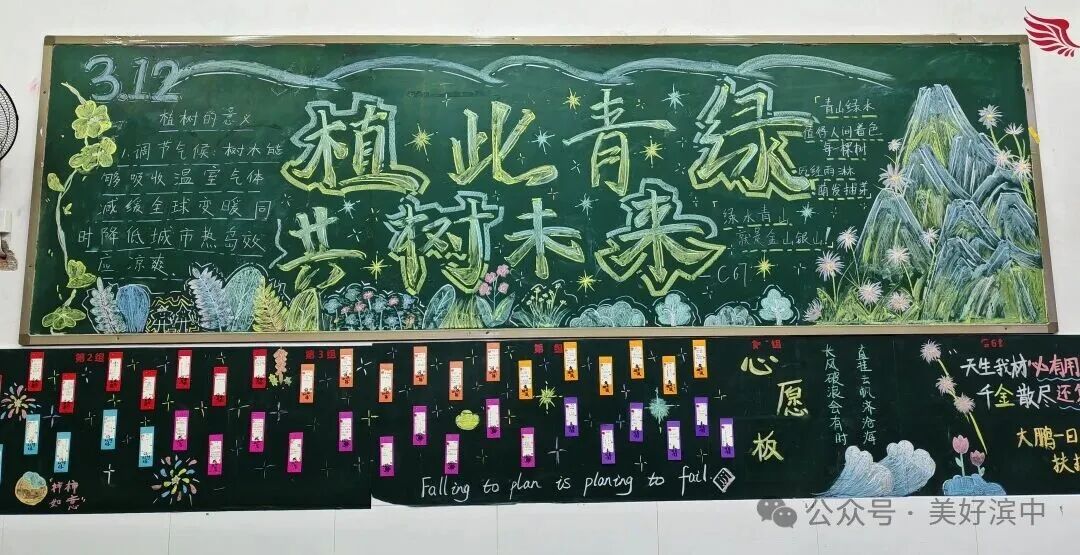 3.12
植树的意义
1.调节气候:树木能
够吸收温室气体
减缓全球变暖同
时降低城市热岛效
应 凉爽
植此青绿
共树未来
「青山绿水
值得人间着色
每一棵树
历经雨淋
萌发抽芽」
「绿水青山
就是金山银山!」
—C67
第2组
第3组
第
组
第6组
心愿板
直挂云帆济沧海
长风破浪会有时
"天生我材必有用
千金散尽还
大鹏一日
扶
"柿柿
如意"
Falling to plan is planing to fail.
公众号·美好滨中